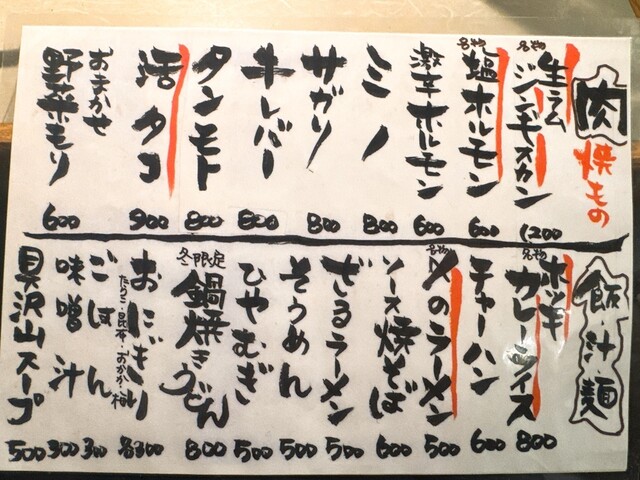 肉
焼もの
名物
生ラム
ジンギスカン
1200
名物
塩ホルモン
600
激辛ホルモン
600
ミノ
800
サガリ
800
キレバー
800
タンモト
800
活タコ
900
おまかせ
野菜もり
600
飯・汁・麺
名物
ホッキ
カレーライス
800
チャーハン
600
名物
〆のラーメン
500
ソース焼そば
600
ざるラーメン
500
そうめん
500
ひやむぎ
500
冬限定
鍋焼きうどん
800
おにぎり
たらこ・昆布・おかか・梅
各300
ごはん
300
味噌汁
300
具沢山スープ
500